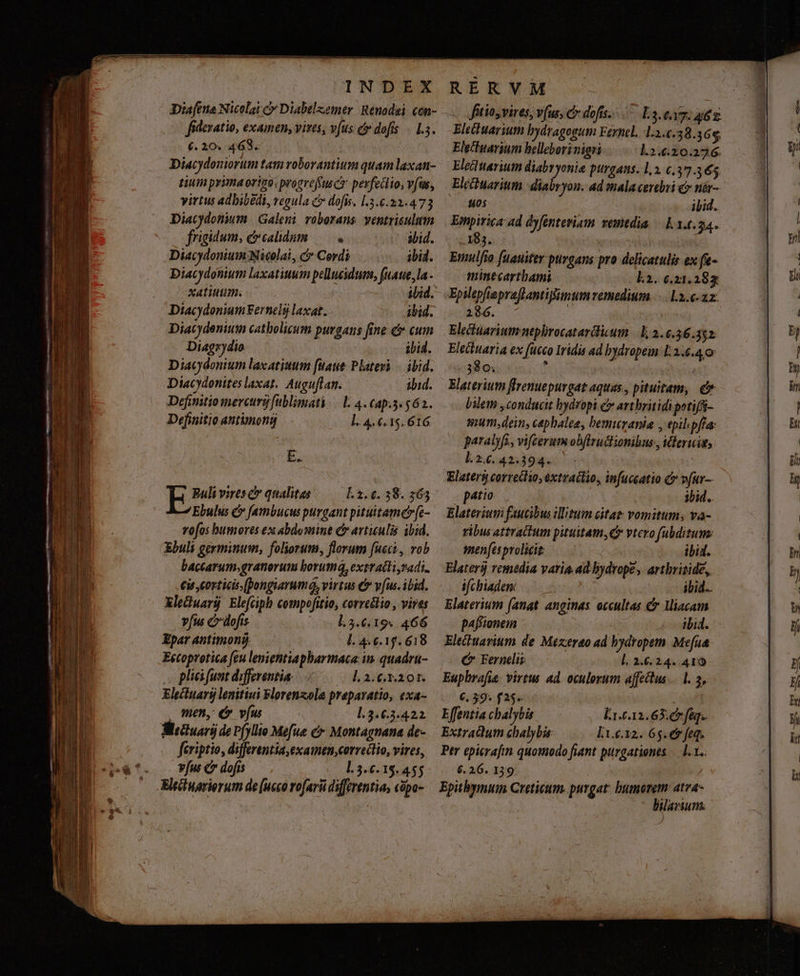 INDEX RERVM
Diasena Nicolai & Diabelzemer Renodæi con-
sideratio, examen, vires, vsus & dosis l.3.
c. 20. 468.
Diacydoniorum tam roborantium quam laxan-
tium prima origo, progressus & perfectio, vsus,
virtus adhibēdi, regula & dosis. l.3.c.22.473
Diacydonium Galeni roborans ventriculum
frigidum, & calidum ibid.
Diacydonium Nicolai, & Cordi ibid.
Diacydonium laxatiuum pellucidum, suaue, la-
xatiuum. ibid.
Diacydonium Fernelij laxat. ibid.
Diacydonium catholicum purgans sine & cum
Diagrydio ibid.
Diacydonium laxatiuum suaue Plateri ibid.
Diacydonites laxat. Augustan. ibid.
Definitio mercurij sublimati l. 4. cap.3. 562.
Definitio antimonij l. 4. c. 15. 616
E.
Ebuli vires & qualitas l. 2. c. 38. 363
Ebulus & sambucus purgant pituitam & se-
rosos humores ex abdomine & articulis ibid.
Ebuli germinum, foliorum, florum succi, rob
baccarum, granorum horumq, extracti, radi-
cis, corticis, spongiarumq, virtus & vsus. ibid.
Electuarij Elesciph compositio, correctio, vires
vsus & dosis l.3.c.19. 466
Epar antimonij l. 4. c. 15. 618
Eccoprotica seu lenientia pharmaca in quadru-
plici sunt differentia l. 2. c. 1. 201.
Electuarij lenitiui Florenzolæ preparatio, exa-
men, & vsus l.3.c.3.422
Electuarij de Psyllio Mesuæ & Montagnana de-
scriptio, differentia, examen, correctio, vires,
vsus & dosis l. 3. c. 15. 455
Electuariorum de succo rosarū differentia, cōpo-
sitio, vires, vsus, & dosis. l. 3. c. 17. 462
Electuarium hydragogum Fernel. l.2.c.38.365
Electuarium hellebori nigri l.2.c.20.276
Electuarium diabryoniæ purgans. l.2 c.37.365
Electuarium diabryon. ad mala cerebri & ner-
uos ibid.
Empirica ad dysenteriam remedia l. 1. c. 34.
183.
Emulsio suauiter purgans pro delicatulis ex se-
mine carthami l.2. c.21.283
Epilepsiæ præstantissimum remedium l.2.c.22
286.
Electuarium nephrocatarcticum l. 2. c.36.352
Electuaria ex succo Iridis ad hydropem l.2.c.40
380.
Elaterium strenue purgat aquas, pituitam, &
bilem, conducit hydropi & arthritidi potiss-
mum, dein, cephaleæ, hemicraniæ, epilepsiæ
paralysi, viscerum obstructionibus, ictericis,
l.2.c. 42.394.
Elaterij correctio, extractio, infuccatio & vsur-
patio ibid.
Elaterium faucibus illitum citat vomitum, va-
ribus attractum pituitam, & vtero subditum
menses prolicit ibid.
Elaterij remedia varia ad hydropē, arthritidē,
ischiadem ibid.
Elaterium sanat anginas occultas & Iliacam
passionem ibid.
Electuarium de Mezereo ad hydropem Mesuæ
& Fernelii l. 2.c. 24. 410
Euphrasiæ virtus ad oculorum affectus l. 3,
c. 39. 525.
Essentia chalybis l.1.c.12. 65. & seq.
Extractum chalybis l.1.c.12. 65. & seq.
Per epicrasin quomodo fiant purgationes l. 1.
c. 26. 139
Epithymum Creticum purgat humorem atra-
bilarium